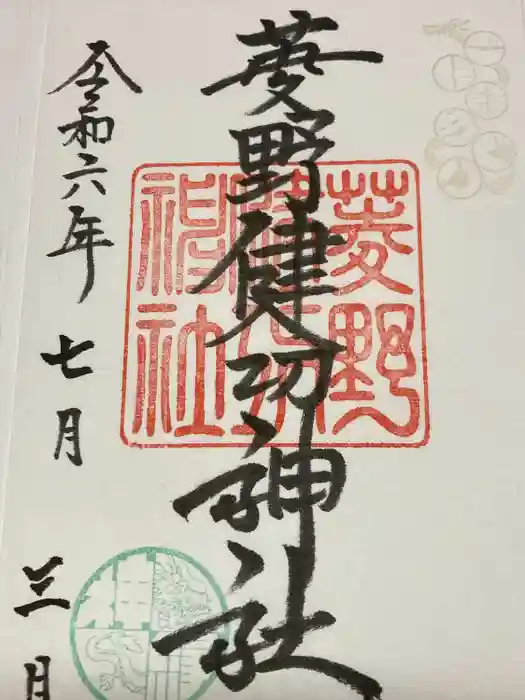 菱野健功神社
令和六年 七月 三日
菱野
健功
神社